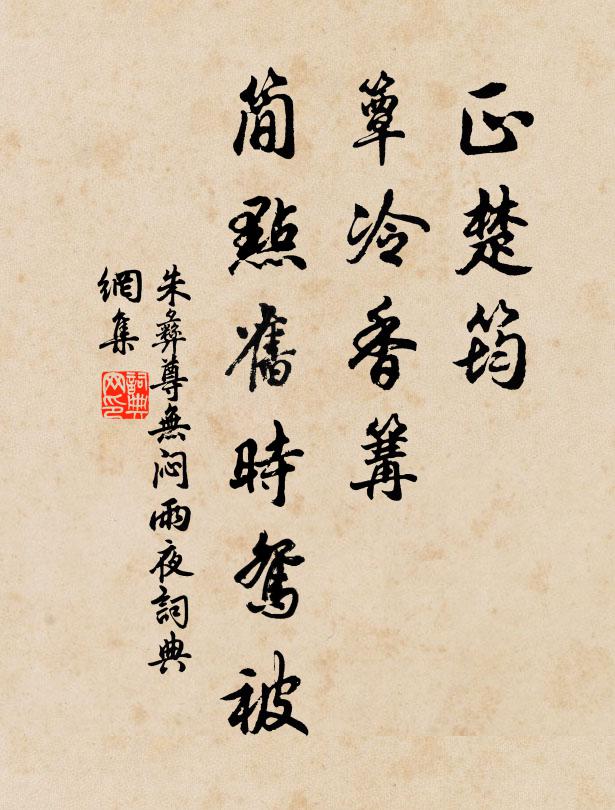 正楚筠
簟冷香篝
简點舊時鴛被
朱彝尊無闷雨夜詞典
網集
詞典
网印